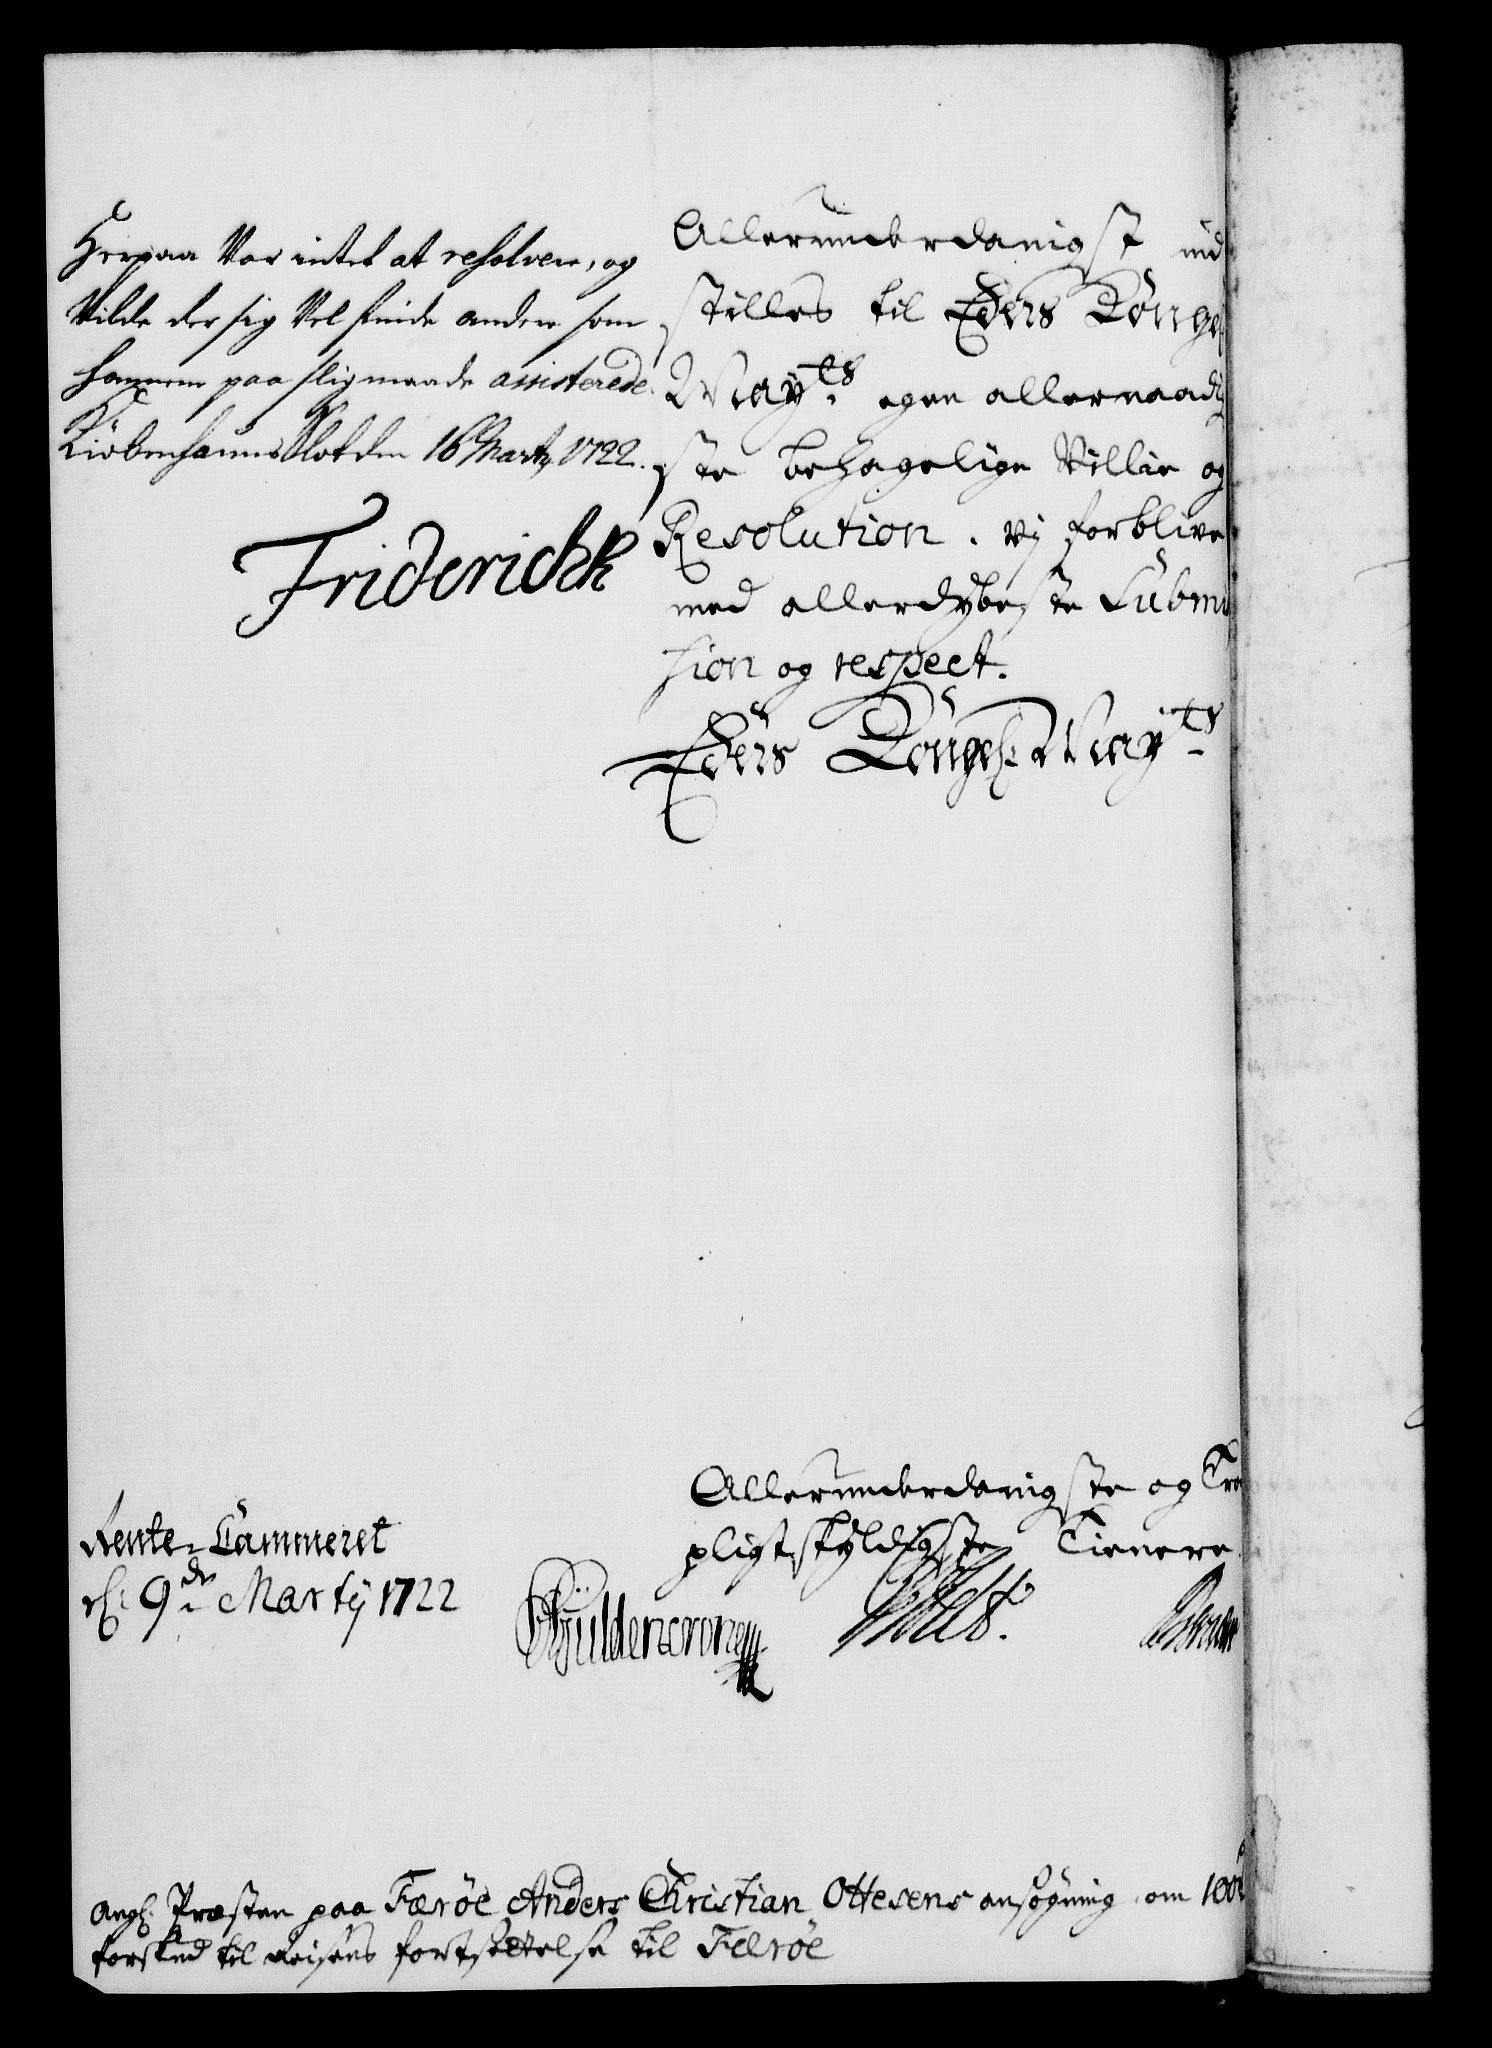 Herpaa Var intet at resolvere, og
Vilde der sig Vel finde andre som
hannem paa slig maade assisterede.
Kiöbenhauns Slot den 16 Marty 1722.
Friderich R
Allerunderdanigst ind
stilles til Eders Kongel
Mayts. egen allernaadig
ste behagelige Villie og
Resolution. vj forblive
med allerdybeste Submis
sion og respect.
Eders Kongel. Mayts.
Allerunderdanigste og Tro
pligtskyldigste Tienere
Rente-Cammeret
d. 9de Marty 1722
Güldencrone
Angl. Præsten paa Færöe Anders Christian Ottesens ansögning om 100
forskud til Reisens fortsettelse til Færöe